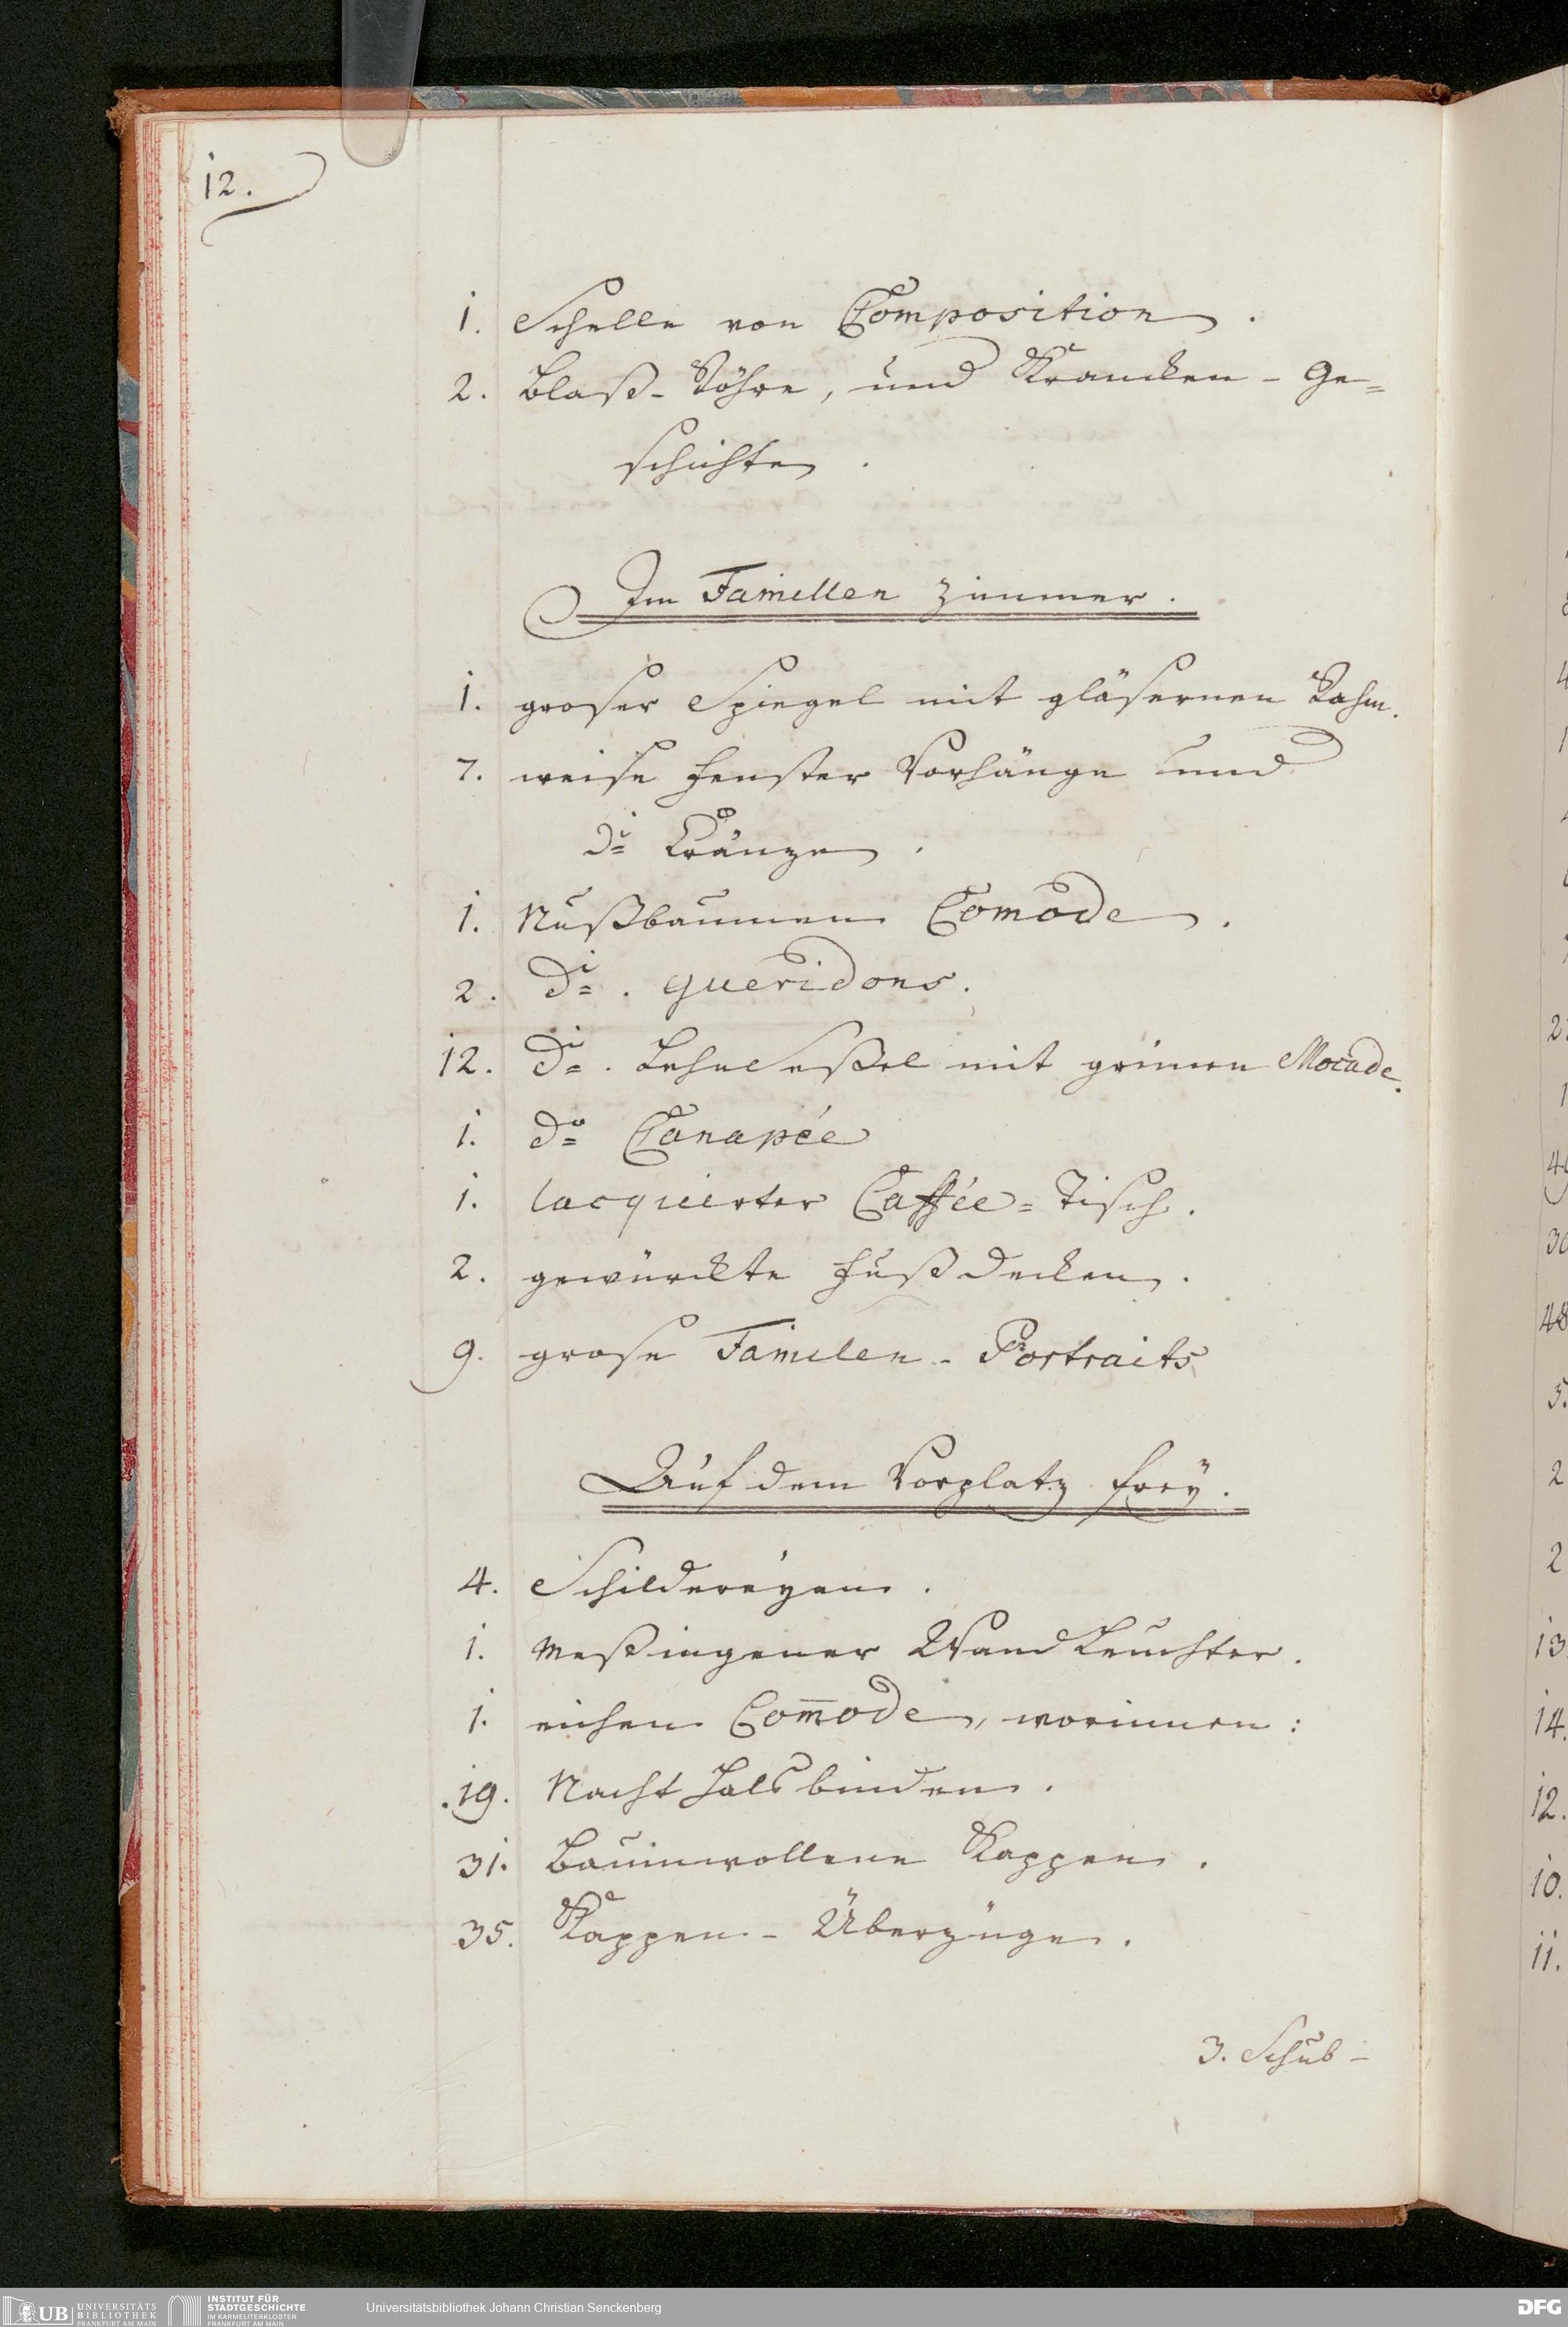 12.
1. Schelle von Composition.
2. Blaß-Röhre, und Krancken-Ge=
schichten.
Im Famillen Zimmer.
1. groser Spiegel mit gläsernen Rahm.
7. weise Fenster Vorhänge und
do Kränzen.
1. Nußbaumen Comode.
2. do. gueridons.
12. do. LehnSeßel mit grünen Mocade.
1. do Canapée
1. lacquierter Caffée=Tisch.
2. gewürckte Fußdecken.
9. grose Familen-Portraits
Auf dem Vorplatz frey.
4. Schildereÿen.
1. Meßingener WandLeuchter.
1. eichen Com̅ode, worinnen:
19. Nacht Halsbinden.
31. Baumwollene Kappen.
35. Kappen-Überzüge.
3. Schub-
UB UNIVERSITÄTS
BIBLIOTHEK
FRANKFURT AM MAIN
INSTITUT FÜR
STADTGESCHICHTE
IM KARMELITERKLOSTER
FRANKFURT AM MAIN
Universitätsbibliothek Johann Christian Senckenberg
DFG